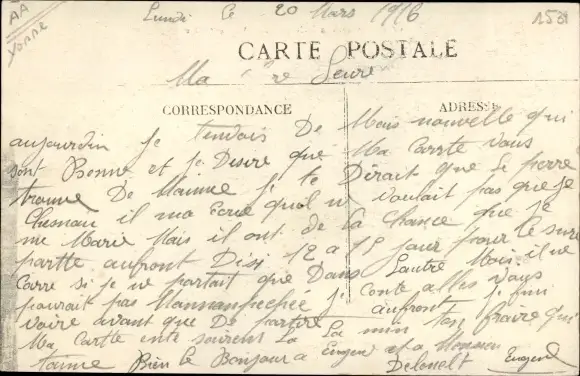 AA
Yonne
Lundi Ce 20 Mars 1916
153
CARTE POSTALE
Ma Seure
CORRESPONDANCE
ADRESSE
aujourdin je De Mais nouvelle qui
sont Bonne et je Desire que Ma Carrte vous
trouve De Maime je te Dirait que Le pierre
Chesnau il ma Ecrie quol ne voulait pas que je
me Marie Mais il ont de La Chance que je
partte aufront Disi 12 a 15 jour pour le sure
Carre si je ne partait que Dans Lautre Mais il ne
pourait pas je Conte alles vous
voire avant que De partire aufront je suis
Ma Cartte ente La La min ton fraire qui
taime Bien le Bonjour a Eugene et a Monsieu
Delouelt Eugene